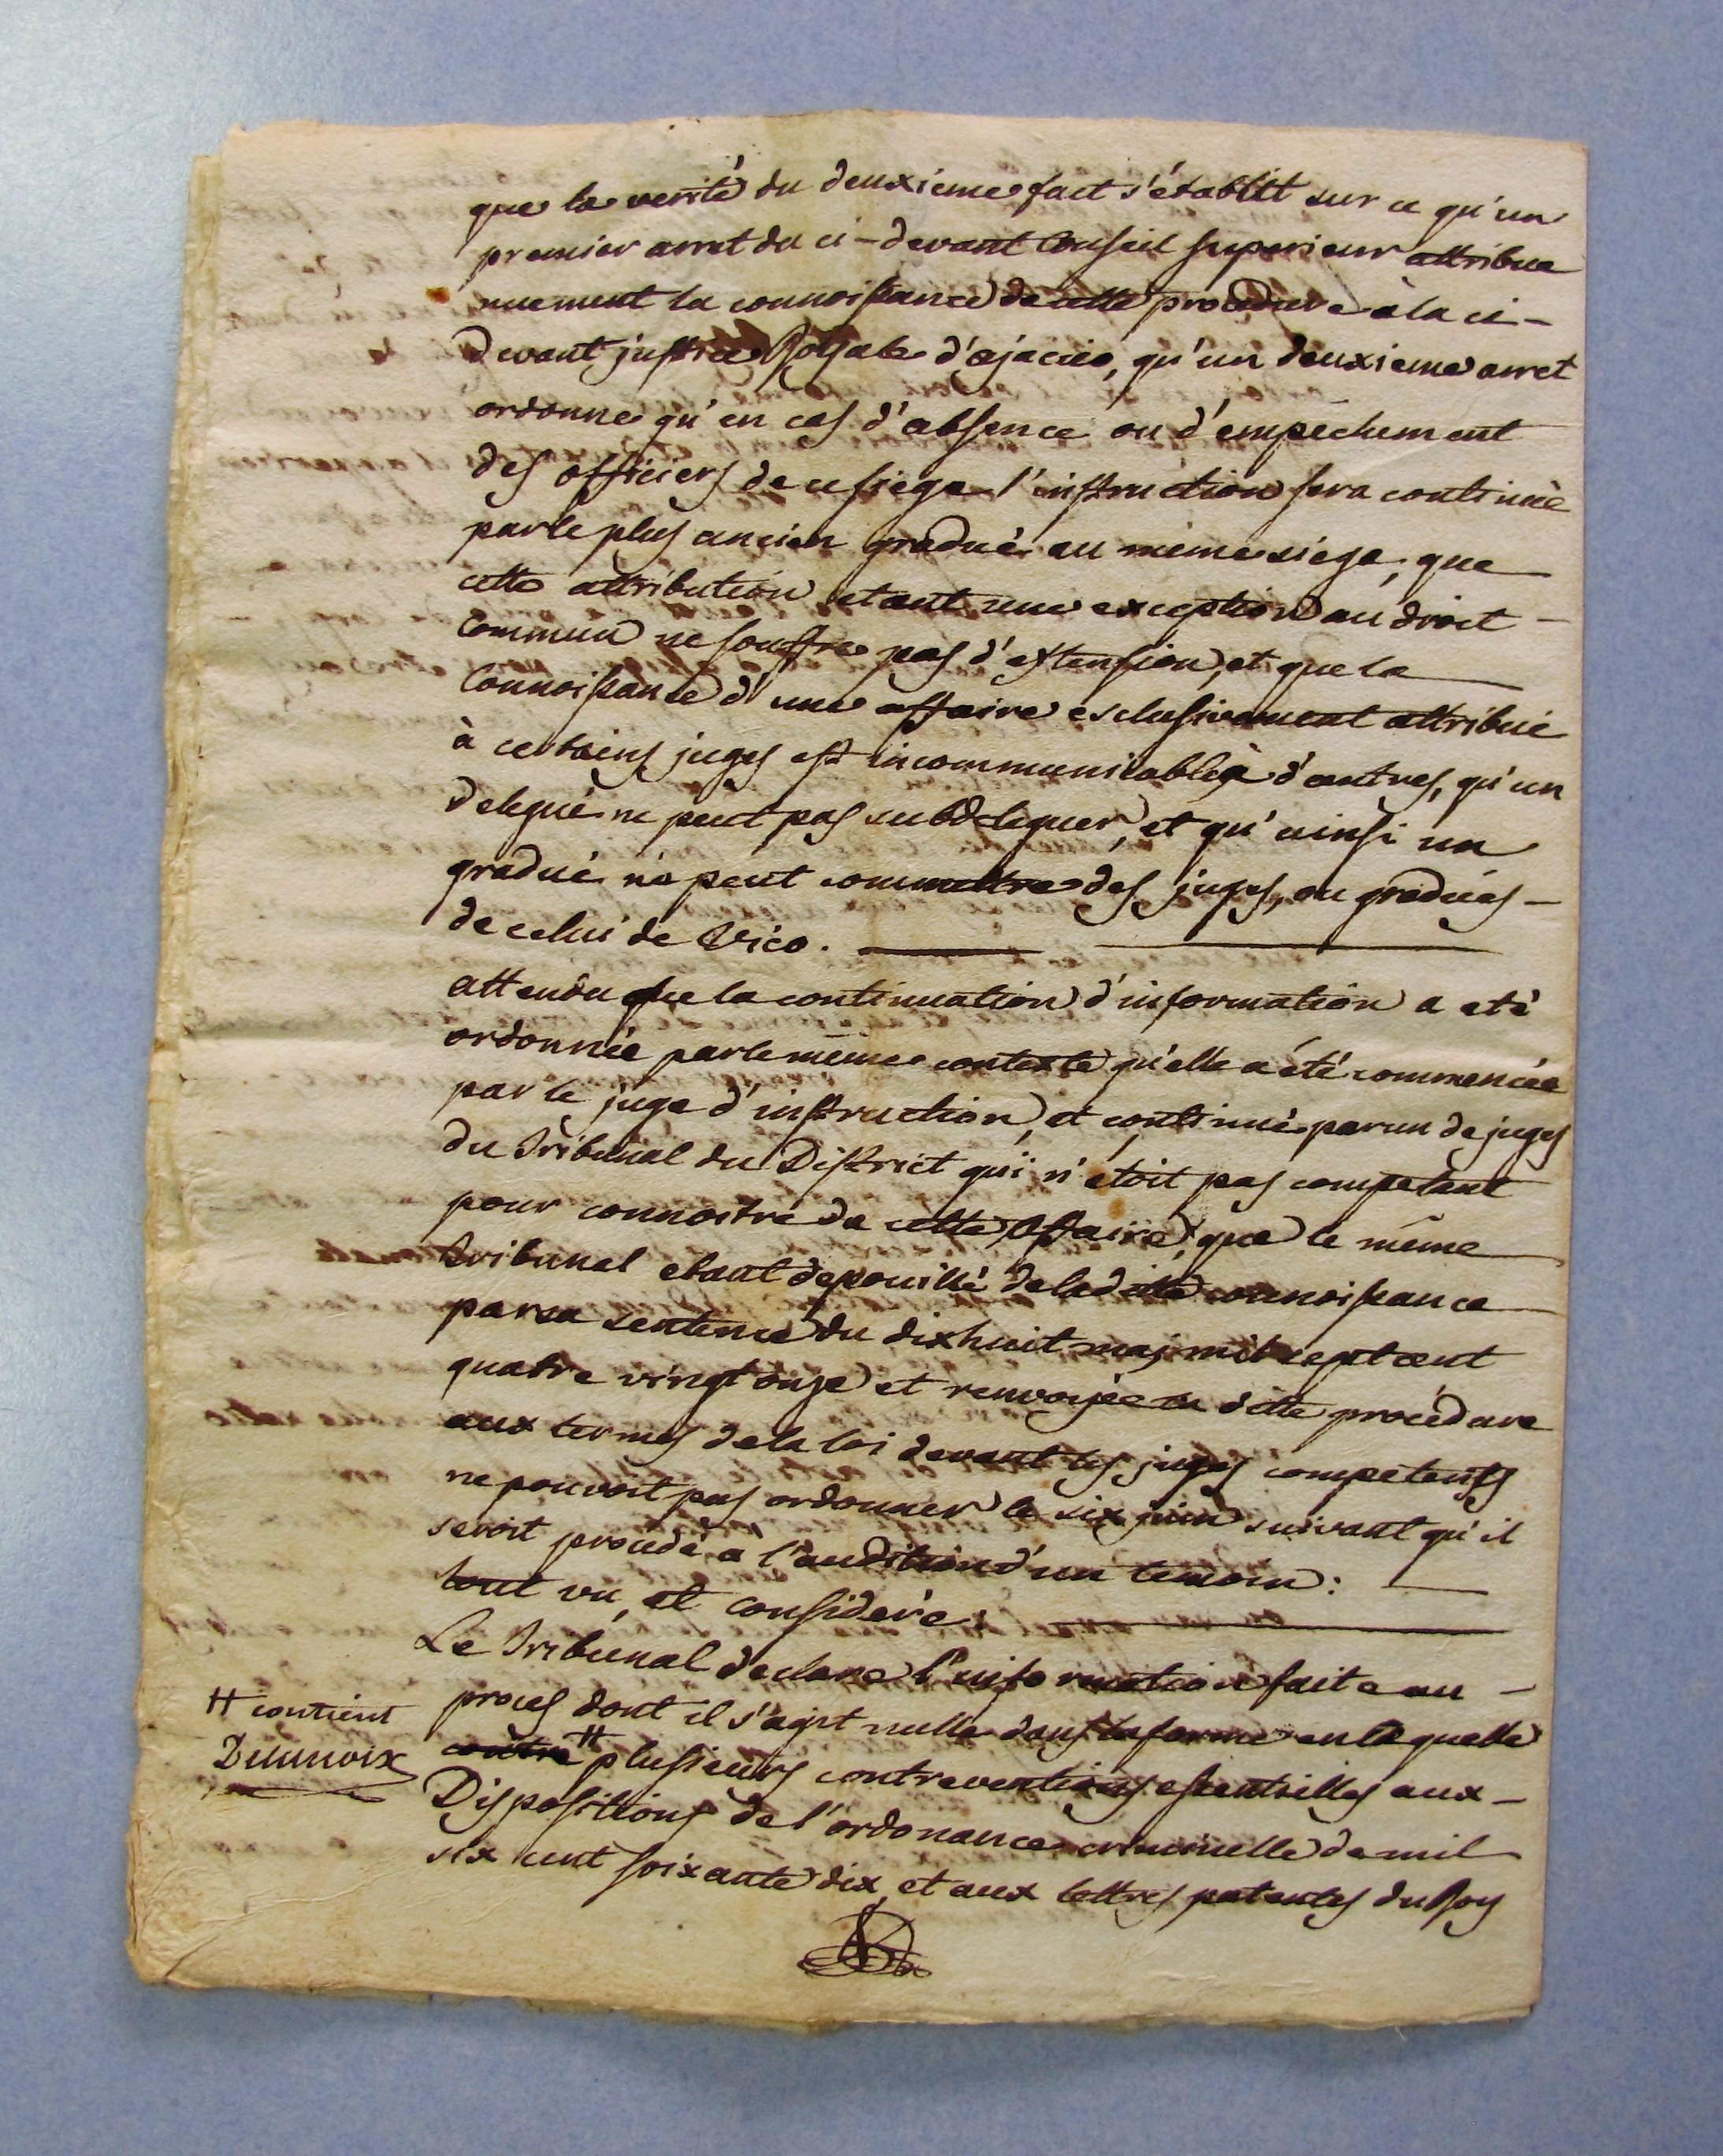 que la verité du deuxieme fait s'établit sur ce qu'un
premier arret du ci-devant Conseil superieur attribue
nuement la connoissance de cette procedure à la ci-
devant justice Royale d'ajacio, qu'un deuxieme arret
ordonne qu'en cas d'absence ou d'empechement
des officiers de ce siege l'instruction sera continuè
par le plus ancien gradué au meme siege, que
cette attribution etant une exception au droit -
commun ne souffre pas d'extension, et que la
Connoissance d'une affaire esclusivement attribué
à certains juges est incommunicable à d'autres, qu'un
delegué ne peut pas subdeleguer, et qu'ainsi un
gradué ne peut commettre des juges, ou gradués -
de celui de Vico.
attendu que la continuation d'information a eté
ordonnée par le même contexte qu'elle a été commencée
par le juge d'instruction, et continué par un de juges
du Tribunal du District qui n'étoit pas competant
pour connoitre de cette affaire, que le même
tribunal etant depouillé de ladite connoissance
par sa sentence du dixhuit maj mil sept cent
quatre vingt onze et renvoyée la ditte procédure
aux termes de la loi devant les juges compétents
ne pouvoit pas ordonner le six juin suivant qu'il
seroit procedé a l'audition d'un temoin:
tout vu, et consideré.
Le Tribunal declare l'information faite au -
proces dont il s'agit nulle dans la forme en la quelle
contre # plusieurs contreventions essentielles aux -
Dispositions de l'ordonance criminelle de mil
six cent soixante dix, et aux lettres patentes du Roy
# contient